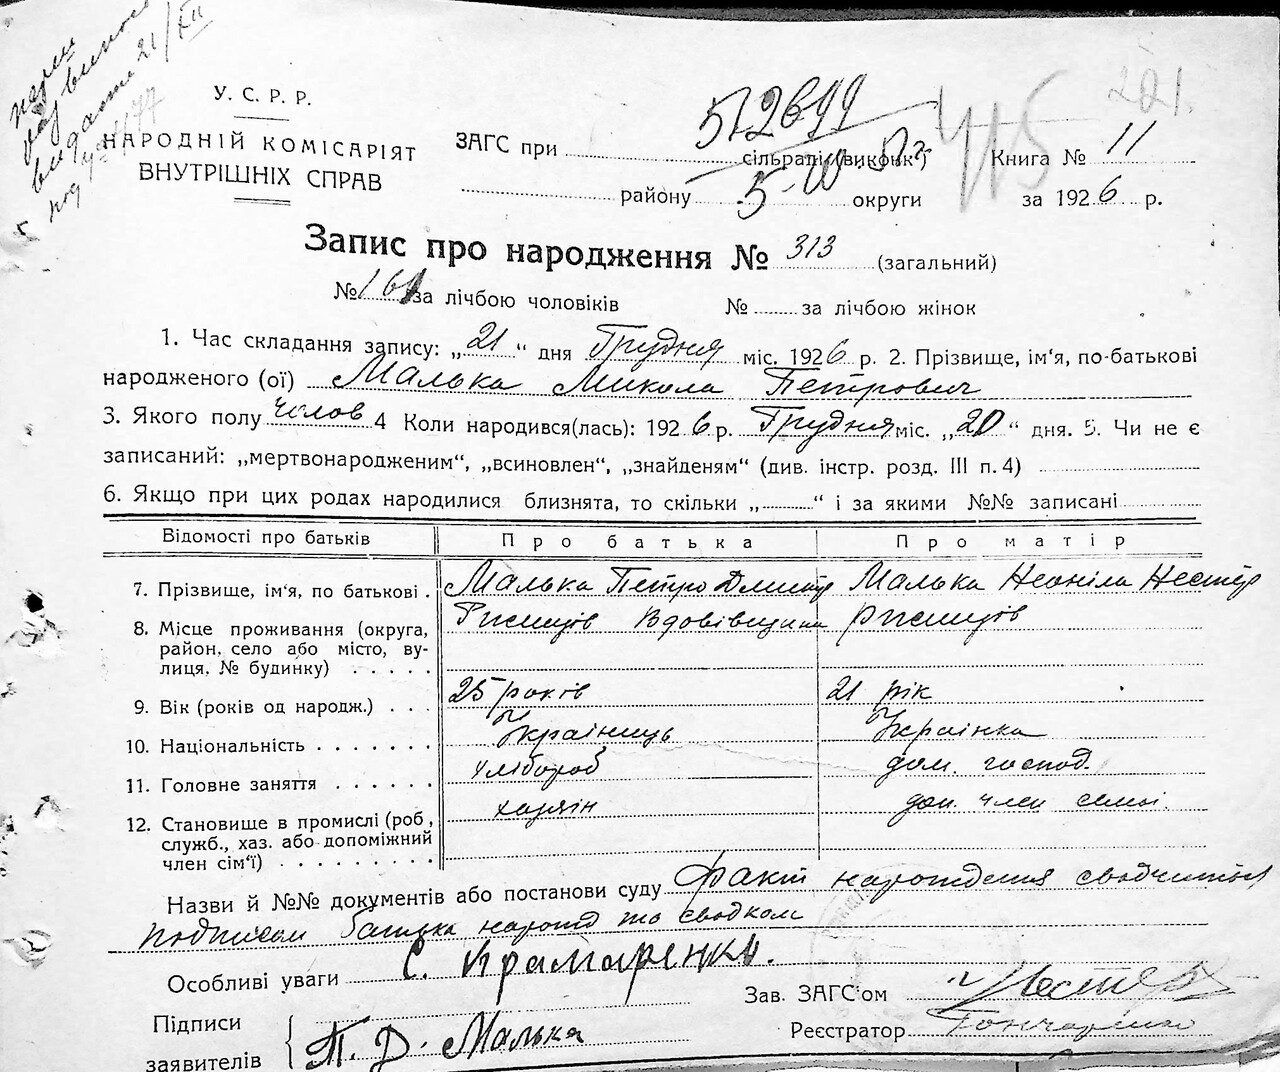 видати 21/XII
У. С. Р. Р.
НАРОДНІЙ КОМІСАРІЯТ
ВНУТРІШНІХ СПРАВ
ЗАГС при сільраді (виконк.)
району округи
Книга № 11
за 1926 р.
415
221.
Запис про народження № 313 (загальний)
№ 161 за лічбою чоловіків № за лічбою жінок
1. Час складання запису: „21“ дня Грудня міс. 1926 р. 2. Прізвище, ім'я, по-батькові
народженого (ої) Малька Микола Петрович
3. Якого полу чолов 4 Коли народився(лась): 1926 р. Грудня міс. „20“ дня. 5. Чи не є
записаний: „мертвонародженим“, „всиновлен“, „знайденям“ (див. інстр. розд. III п. 4)
6. Якщо при цих родах народилися близнята, то скільки „ “ і за якими №№ записані
Відомості про батьків Про батька Про матір
7. Прізвище, ім'я, по батькові . Малька Петро Дмитр Малька Неоніла Нестер
8. Місце проживання (округа, Ржищів Вдовівщина Ржищів
район, село або місто, ву-
лиця, № будинку) . . . . .
9. Вік (років од народж.) . . . 25 років 21 рік
10. Національність . . . . . . . Українець Українка
11. Головне заняття . . . . . . хлібороб дом. господ.
12. Становище в промислі (роб, хазяїн доп. член семьі.
служб., хаз. або допоміжний
член сім'ї) . . . . . . . . .
Назви й №№ документів або постанови суду Факт народження сводчиться
подписом батька народ та сводком
Особливі уваги С. Крамаренко.
Зав. ЗАГС'ом
Підписи
Реєстратор Гончаренко
заявителів П. Д. Малька